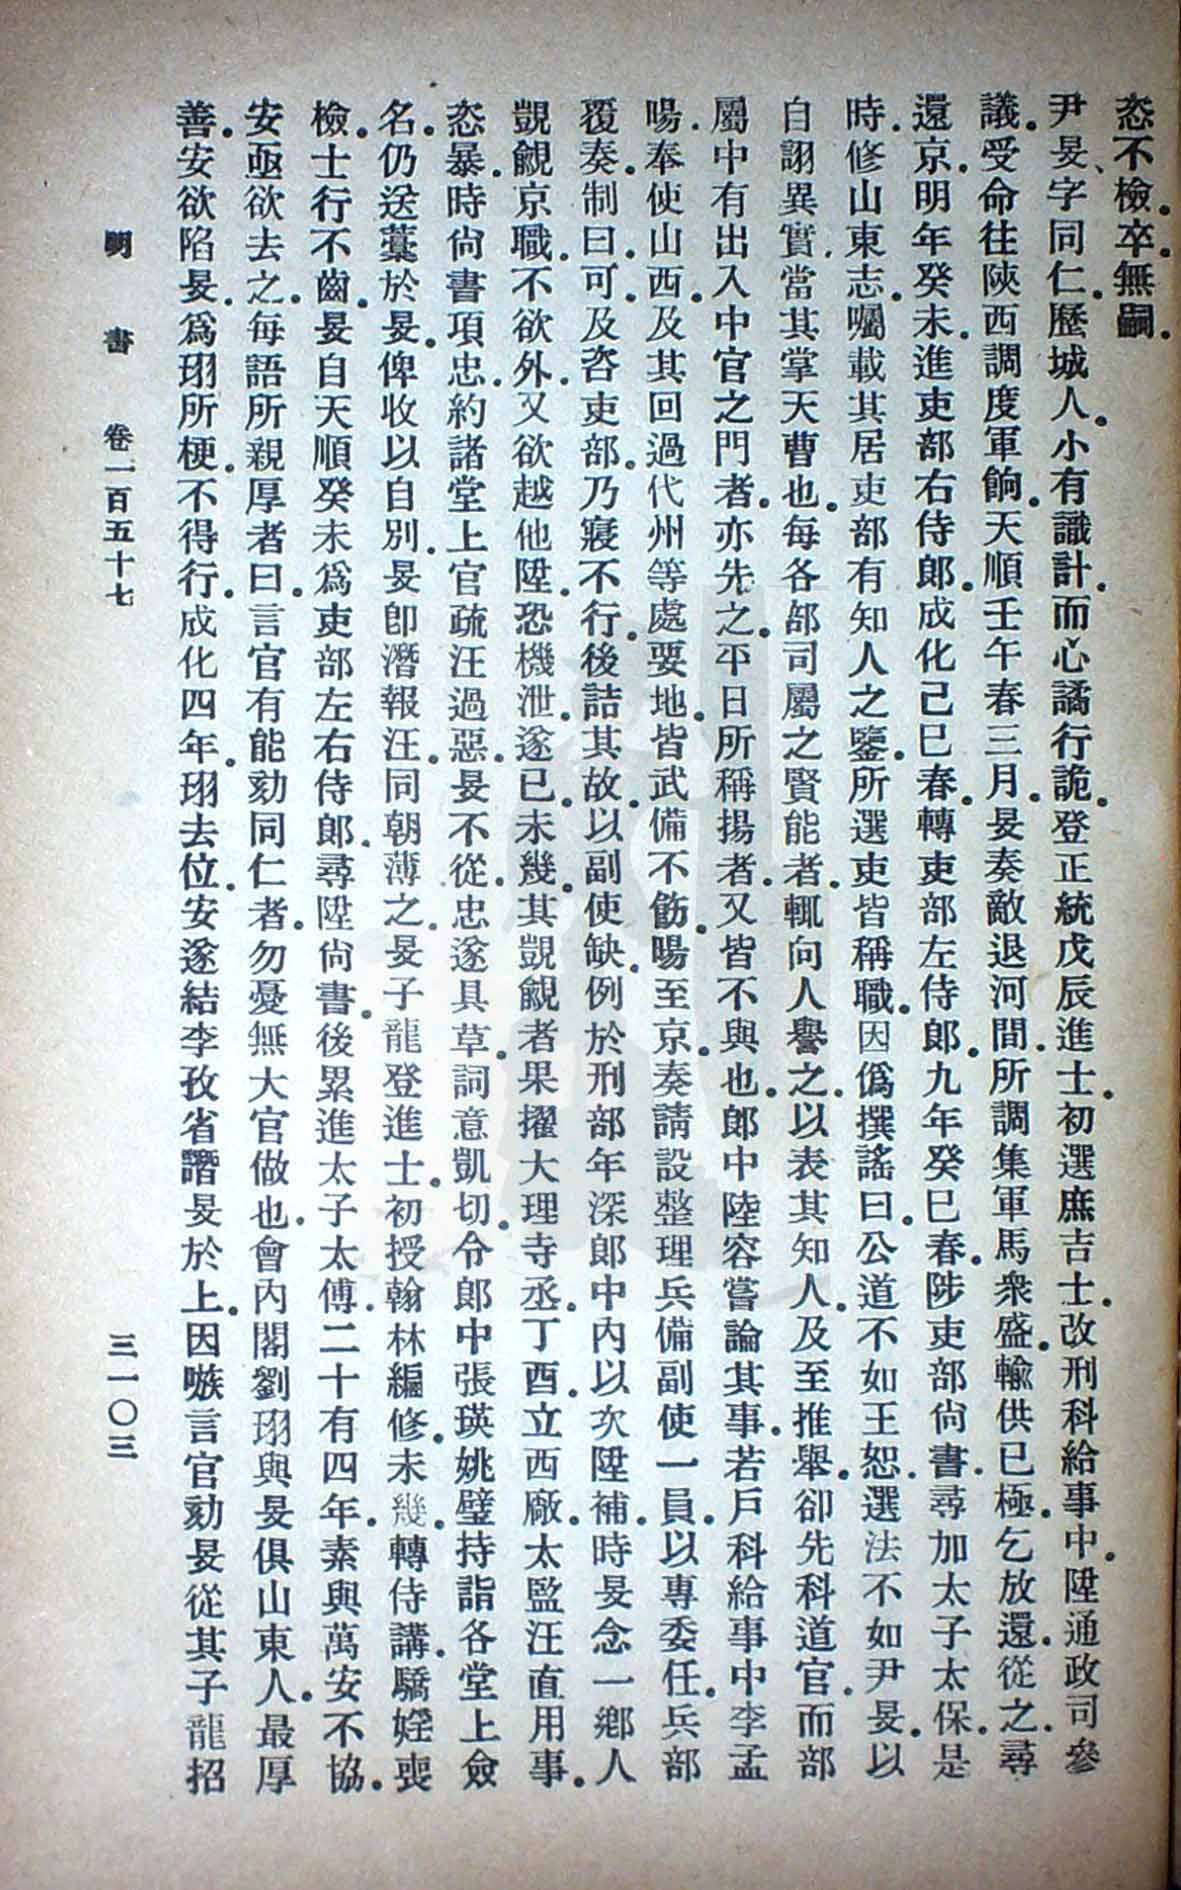 恣不檢卒無嗣。
尹旻、字同仁。歷城人。小有識計。而心譎行詭。登正統戊辰進士。初選庶吉士。改刑科給事中。陞通政司參
議。受命往陝西調度軍餉。天順壬午春三月。旻奏敵退河間。所調集軍馬衆盛。輸供已極。乞放還。從之。尋
還京。明年癸未。進吏部右侍郎。成化己巳春。轉吏部左侍郎。九年癸巳春。陟吏部尚書。尋加太子太保。是
時。修山東志。囑載其居吏部有知人之鑒。所選吏皆稱職。因僞撰謠曰。公道不如王恕。選法不如尹旻。以
自詡異。實當其掌天曹也。每各部司屬之賢能者。輒向人譽之。以表其知人。及至推舉。卻先科道官。而部
屬中有出入中官之門者。亦先之。平日所稱揚者。又皆不與也。郎中陸容嘗論其事。若戶科給事中李孟
暘。奉使山西。及其回過代州等處要地。皆武備不飭。暘至京。奏請設整理兵備副使一員。以專委任。兵部
覆奏。制曰。可。及咨吏部。乃寢不行。後詰其故。以副使缺。例於刑部年深郎中內以次陞補。時旻念一鄉人
覬覦京職。不欲外。又欲越他陞。恐機泄。遂已。未幾。其覬覦者果擢大理寺丞。丁酉。立西廠。太監汪直用事。
恣暴。時尚書項忠。約諸堂上官疏汪過惡。旻不從。忠遂具草。詞意凱切。令郎中張瑛姚璧持詣各堂上僉
名。仍送藁於旻。俾收以自別。旻卽潛報汪。同朝薄之。旻子龍登進士。初授翰林編修。未幾。轉侍講。驕婬喪
檢。士行不齒。旻自天順癸未爲吏部左右侍郎。尋陞尚書。後累進太子太傅。二十有四年。素與萬安不協。
安亟欲去之。每語所親厚者曰。言官有能劾同仁者。勿憂無大官做也。會內閣劉珝與旻俱山東人。最厚
善。安欲陷旻。爲珝所梗。不得行。成化四年。珝去位。安遂結李孜省譖旻於上。因嗾言官劾旻從其子龍招
明書 卷一百五十七 三一〇三